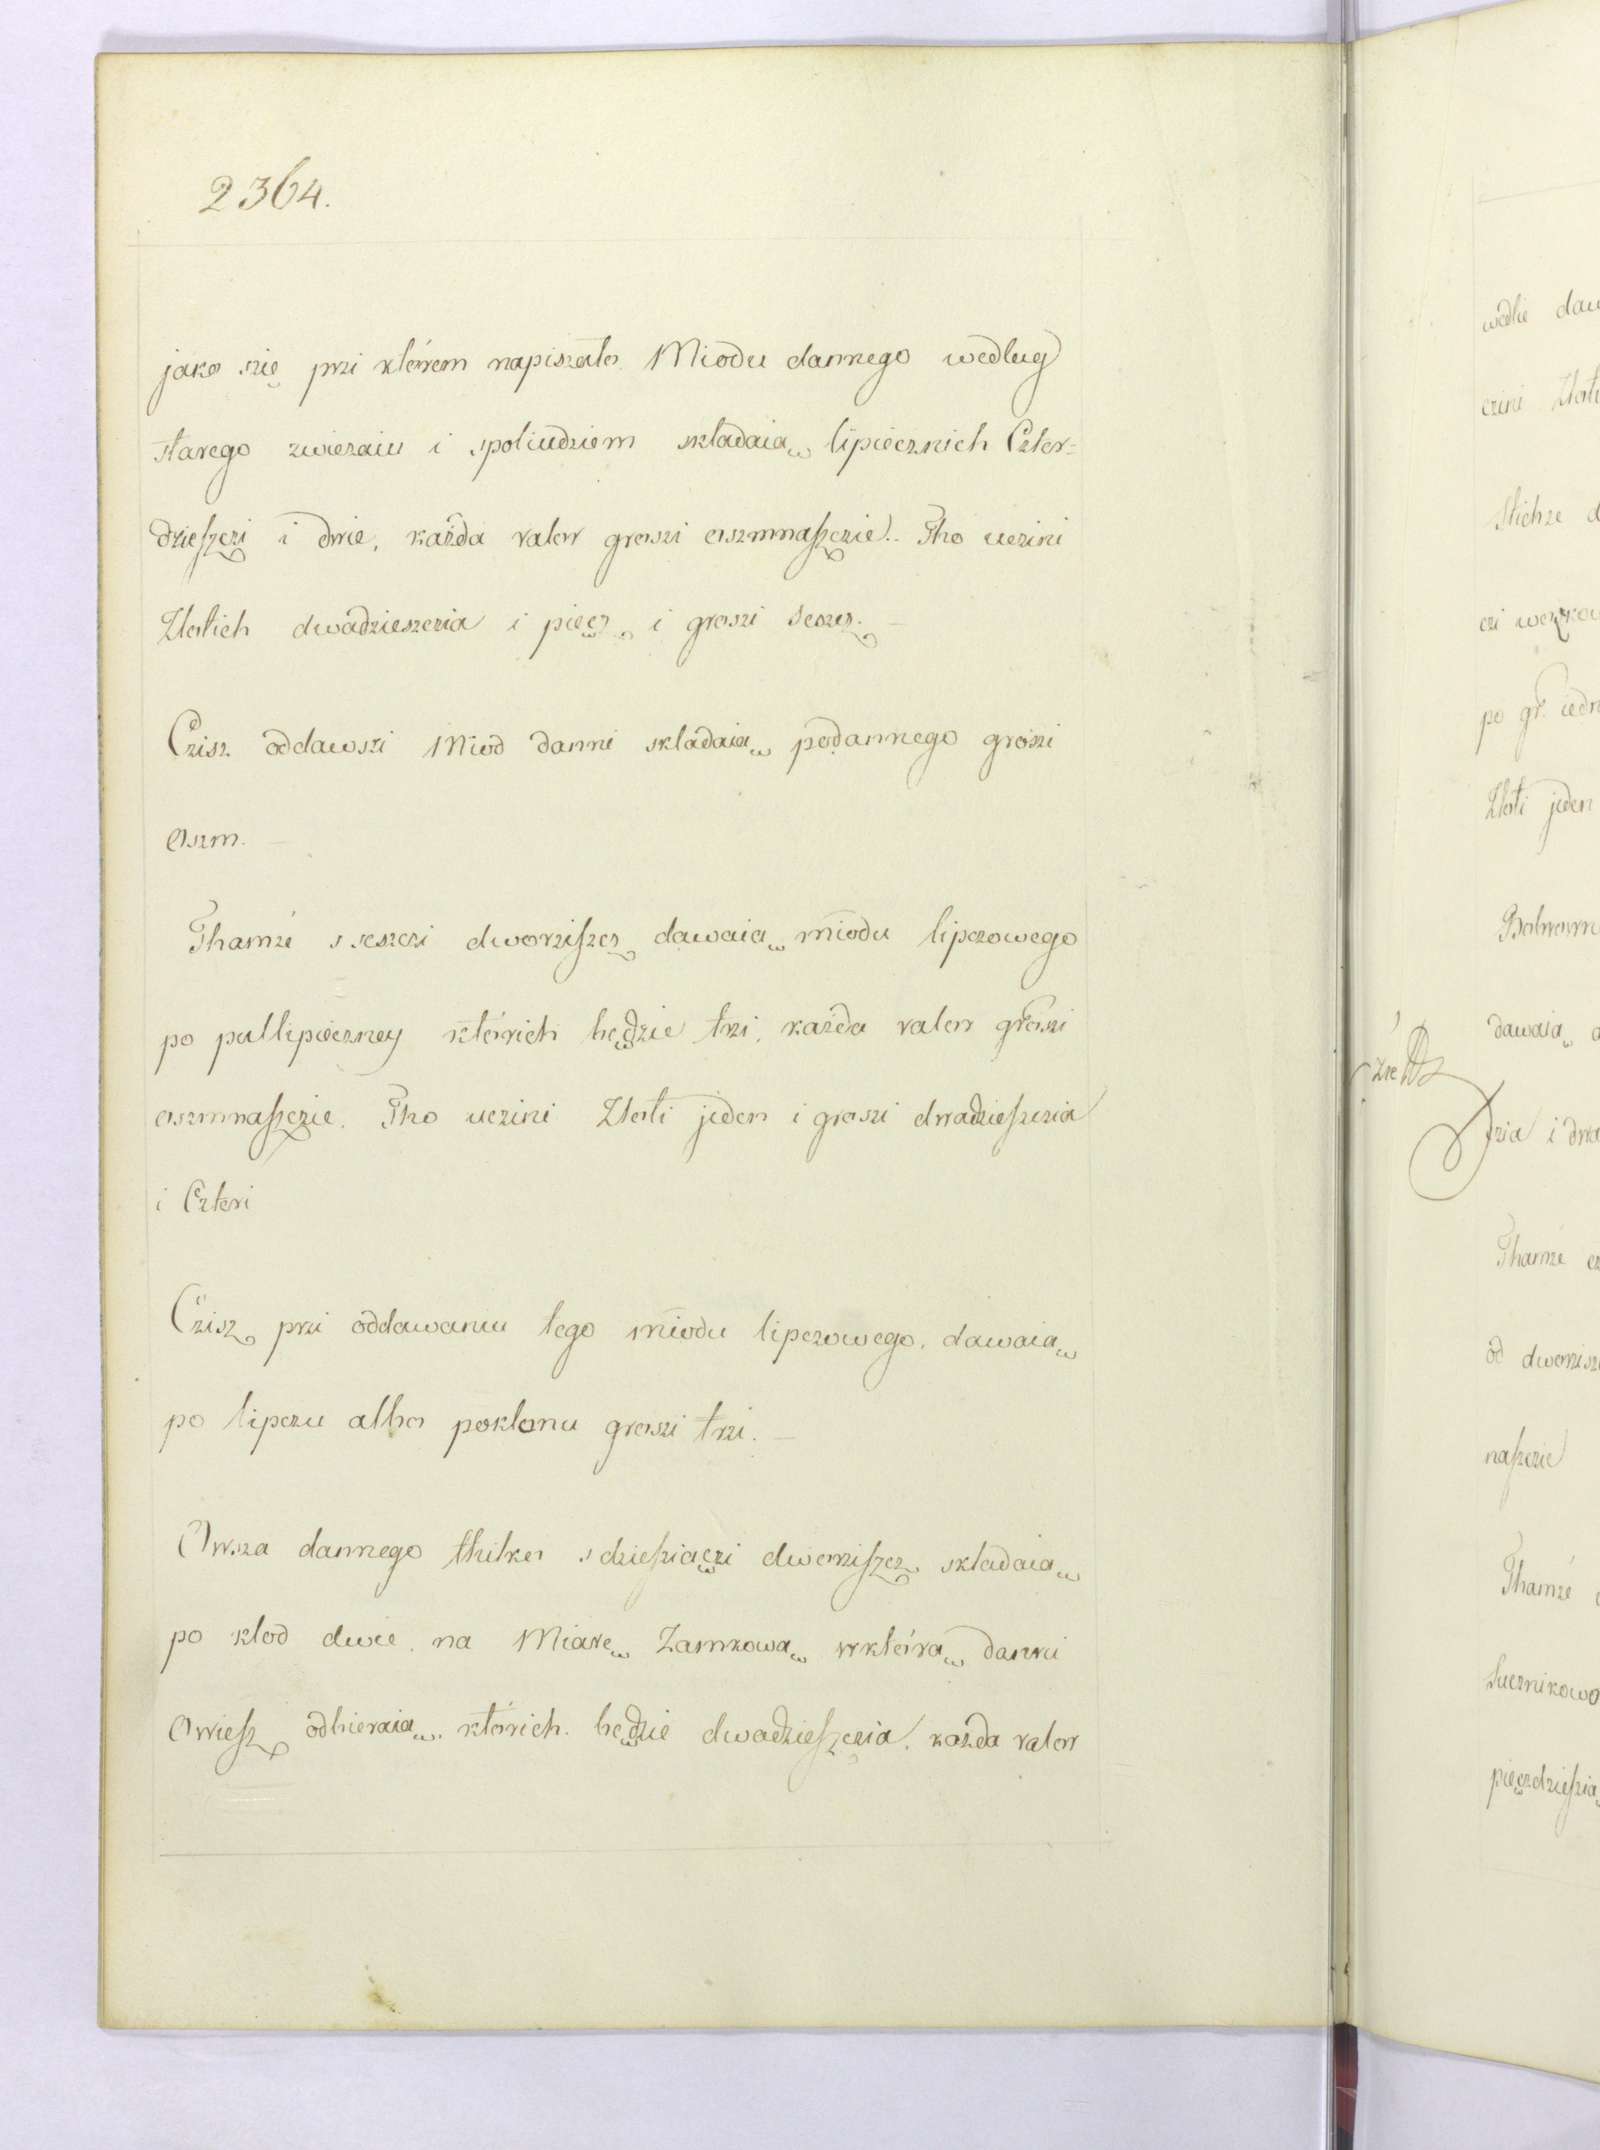 2364.
jako szię przi którem napiszało Miodu dannego według
starego zwiczaiu i spoliudziem składaią lipiecznich Czter=
dzieszczi i dwie, każda valor groszi oszmnaszczie. Tho uczini
Złotich dwadzieszczia i pięcz i groszi szescz.
Czisz oddawszi Miod danni składaią podannego groszi
oszm.
Thamże s seszczi dworziszcz dawaią miodu lipczowego
po pullipieczney których będzie trzi, każda valor groszi
oszmnaszczie. Tho uczini Złoti jeden i groszi dwadzieszczia
i Czteri
Czisz przi oddawaniu tego miodu lipczowego, dawaią
po lipczu albo pokłonu groszi trzi.
Owsza dannego thilko s dziesziączi dworziszcz składaią
po kłod dwie na Miarę Zamkową wktórą danni
Owiesz odbieraią, którich będzie dwadzieszczia, każda valor
wedlie
czini
po gr. iedn
Złoti jeden
dawaią
zie
szia i dwa
Thamże
od dworzisz
naszczie
Thamże